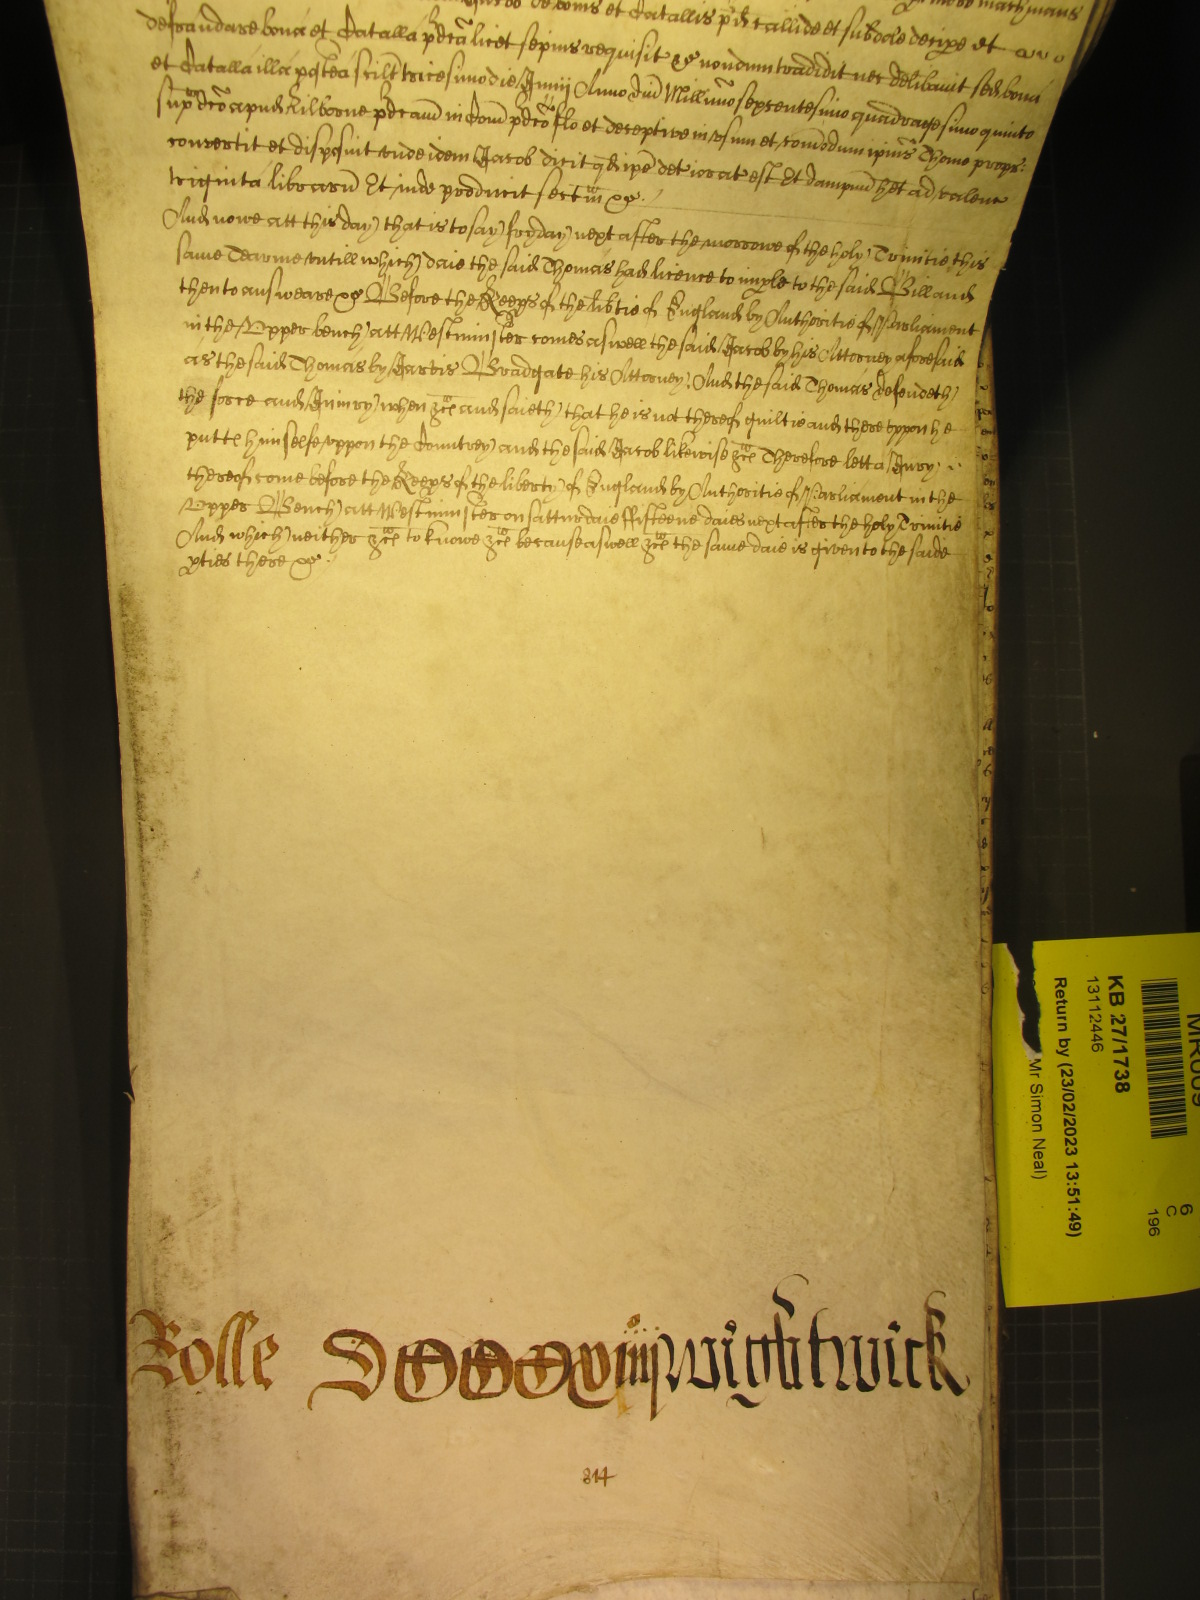 de bonis et Catallis p'd callide et subdole decipe et
defraudare bona et Catalla pdca licet sepius requisit &c nondum tradidit nec deliberavit sed bona
et Catalla illa postea scilt tricesimo die Junij Anno dni Millimo sexcentesimo quadragesimo quinto
sup'dco apud Kilborne pdcam in Com pdco flo et deceptive in usum et comodum ipius Thome propr:
convertit et disposuit unde idem Jacob dicit qd ipe deteriorat est Et dampnu het ad valenc
triginta libraru Et inde producit sectam &c.
And nowe att this day that is to say fryday next after the morrowe of the holy Trinitie this
same Tearme untill which daie the said Thomas had licence to imple to the said Bill and
then to answeare &c Before the Keeps of the libtie of England by Authoritie of Parliament
in the Upper bench att Westminster comes aswell the said Jacob by his Attorney aforesaid
as the said Thomas by Jarvis Bradgate his Attorney. And the said Thomas defendeth
the force and Iniury when &c and saieth that he is not thereof guiltie and thereuppon he
putts himselfe uppon the Countrey and the said Jacob likewise &c Therefore lett a Jury
thereof come before the Keeps of the liberty of England by Authoritie of Parliament in the
Upper Bench att Westminster on satturdaie ffifteene daies next after the holy Trinitie
And which neither &c to knowe &c because aswell &c the same daie is given to the saide
pties there &c.
Rolle DCCCxiiij Wightwick
814
MR009
KB 27/1738
13112446
Return by (23/02/2023 13:51:49)
Mr Simon Neal)
6
C
196